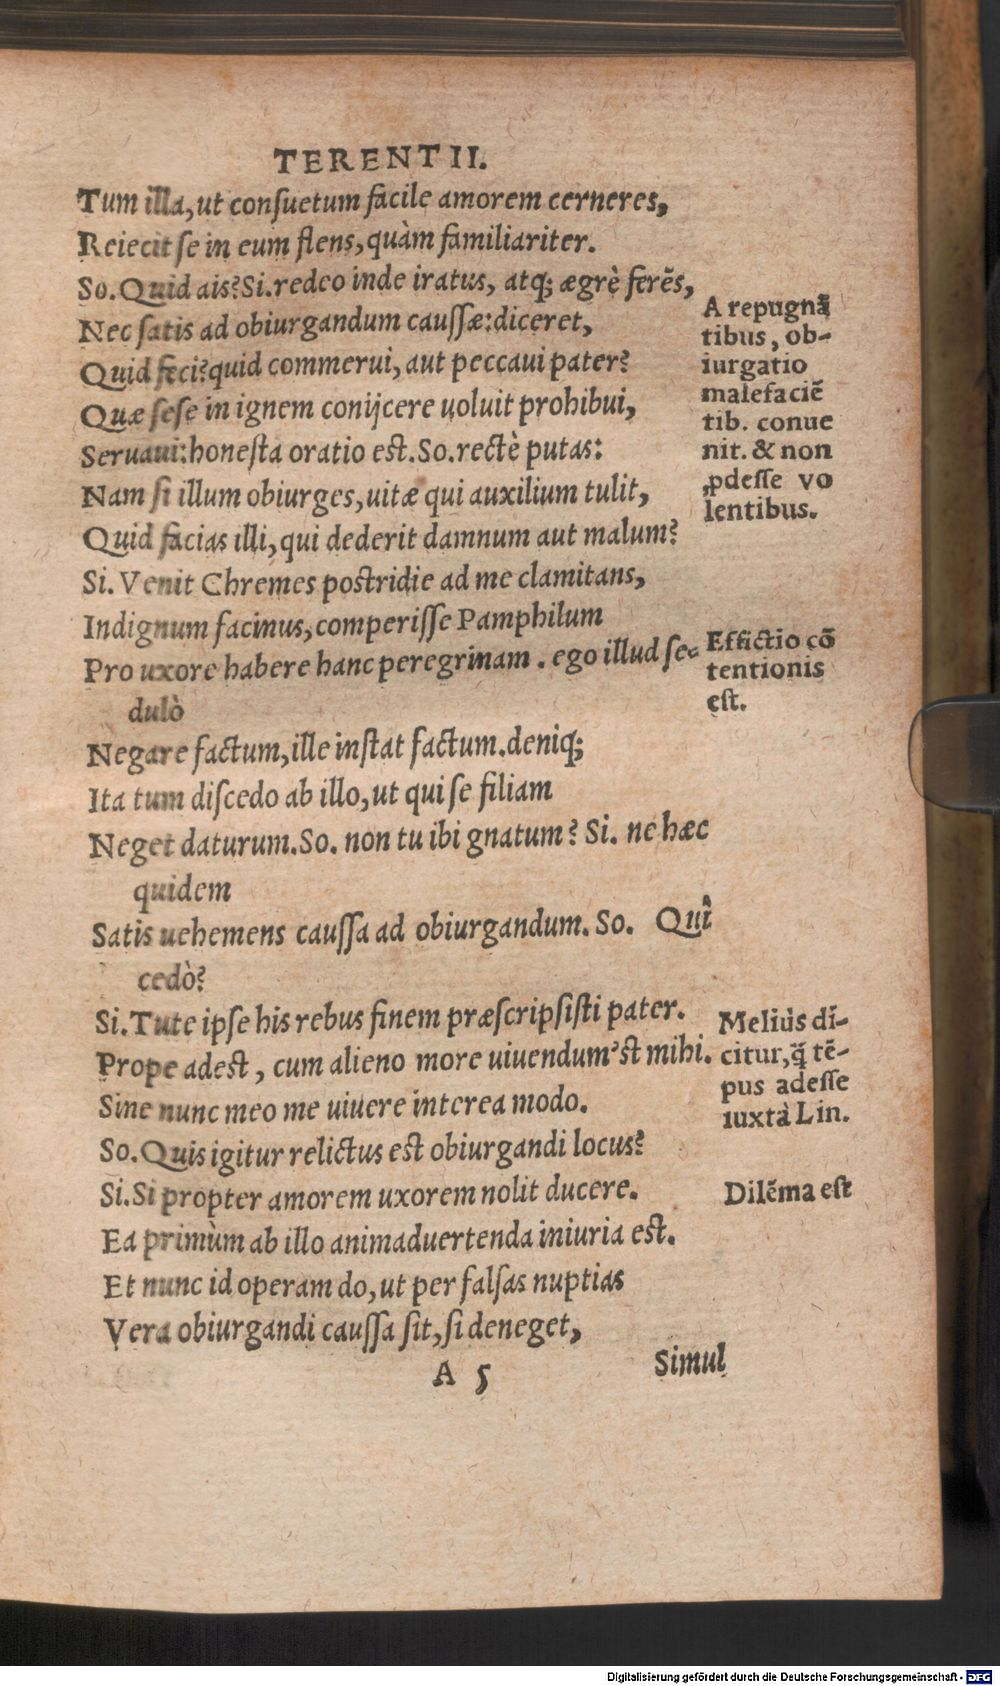 TERENTII.
Tum illa, ut conſuetum facile amorem cerneres,
Reiecit ſe in eum flens, quàm familiariter.
So. Quid ais? Si. redeo inde iratus, atq; ægrè ferẽs,
Nec ſatis ad obiurgandum cauſſæ: diceret,
Quid feci? quid commerui, aut peccaui pater?
Quæ ſeſe in ignem conijcere uoluit prohibui,
Seruaui: honeſta oratio est. So. rectè putas:
Nam ſi illum obiurges, uitæ qui auxilium tulit,
Quid facias illi, qui dederit damnum aut malum?
Si. Venit Chremes postridie ad me clamitans,
Indignum facinus, comperiſſe Pamphilum
Pro uxore habere hanc peregrinam. ego illud ſe=
dulò
Negare factum, ille inſtat factum. deniq;
Ita tum diſcedo ab illo, ut qui ſe filiam
Neget daturum. So. non tu ibi gnatum? Si. ne hæc
quidem
Satis uehemens cauſſa ad obiurgandum. So. Quî
cedò?
Si. Tute ipſe his rebus finem præſcripſiſti pater.
Prope adest, cum alieno more uiuendum'st mihi.
Sine nunc meo me uiuere interea modo.
So. Quis igitur relictus est obiurgandi locus?
Si. Si propter amorem uxorem nolit ducere.
Ea primùm ab illo animaduertenda iniuria est.
Et nunc id operam do, ut per falſas nuptias
Vera obiurgandi cauſſa ſit, ſi deneget,
A 5
Simul
A repugnã
tibus, ob-
iurgatio
malefaciẽ
tib. conue
nit. & non
ꝓdeſſe vo
lentibus.
Effictio cõ
tentionis
eſt.
Meliùs dĩ-
citur, q̃ tẽ-
pus adeſſe
iuxtà Lin.
Dilẽma eſt
Digitalisierung gefördert durch die Deutsche Forschungsgemeinschaft - DFG